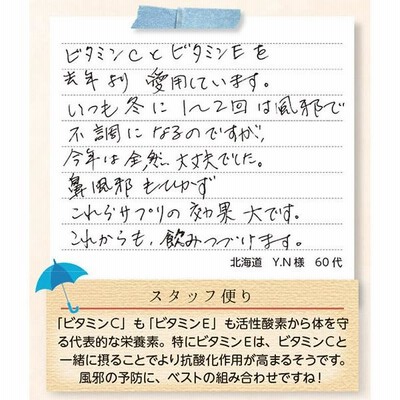 ビタミンCとビタミンEを
去年より 愛用しています。
いつも冬に1〜2回は風邪で
不調になるのですが、
今年は全然大丈夫でした。
鼻風邪もひかず
これらサプリの効果大です。
これからも、飲みつづけます。
北海道 Y.N様 60代
スタッフ便り
「ビタミンC」も「ビタミンE」も活性酸素から体を守
る代表的な栄養素。特にビタミンEは、ビタミンCと
一緒に摂ることでより抗酸化作用が高まるそうです。
風邪の予防に、ベストの組み合わせですね!